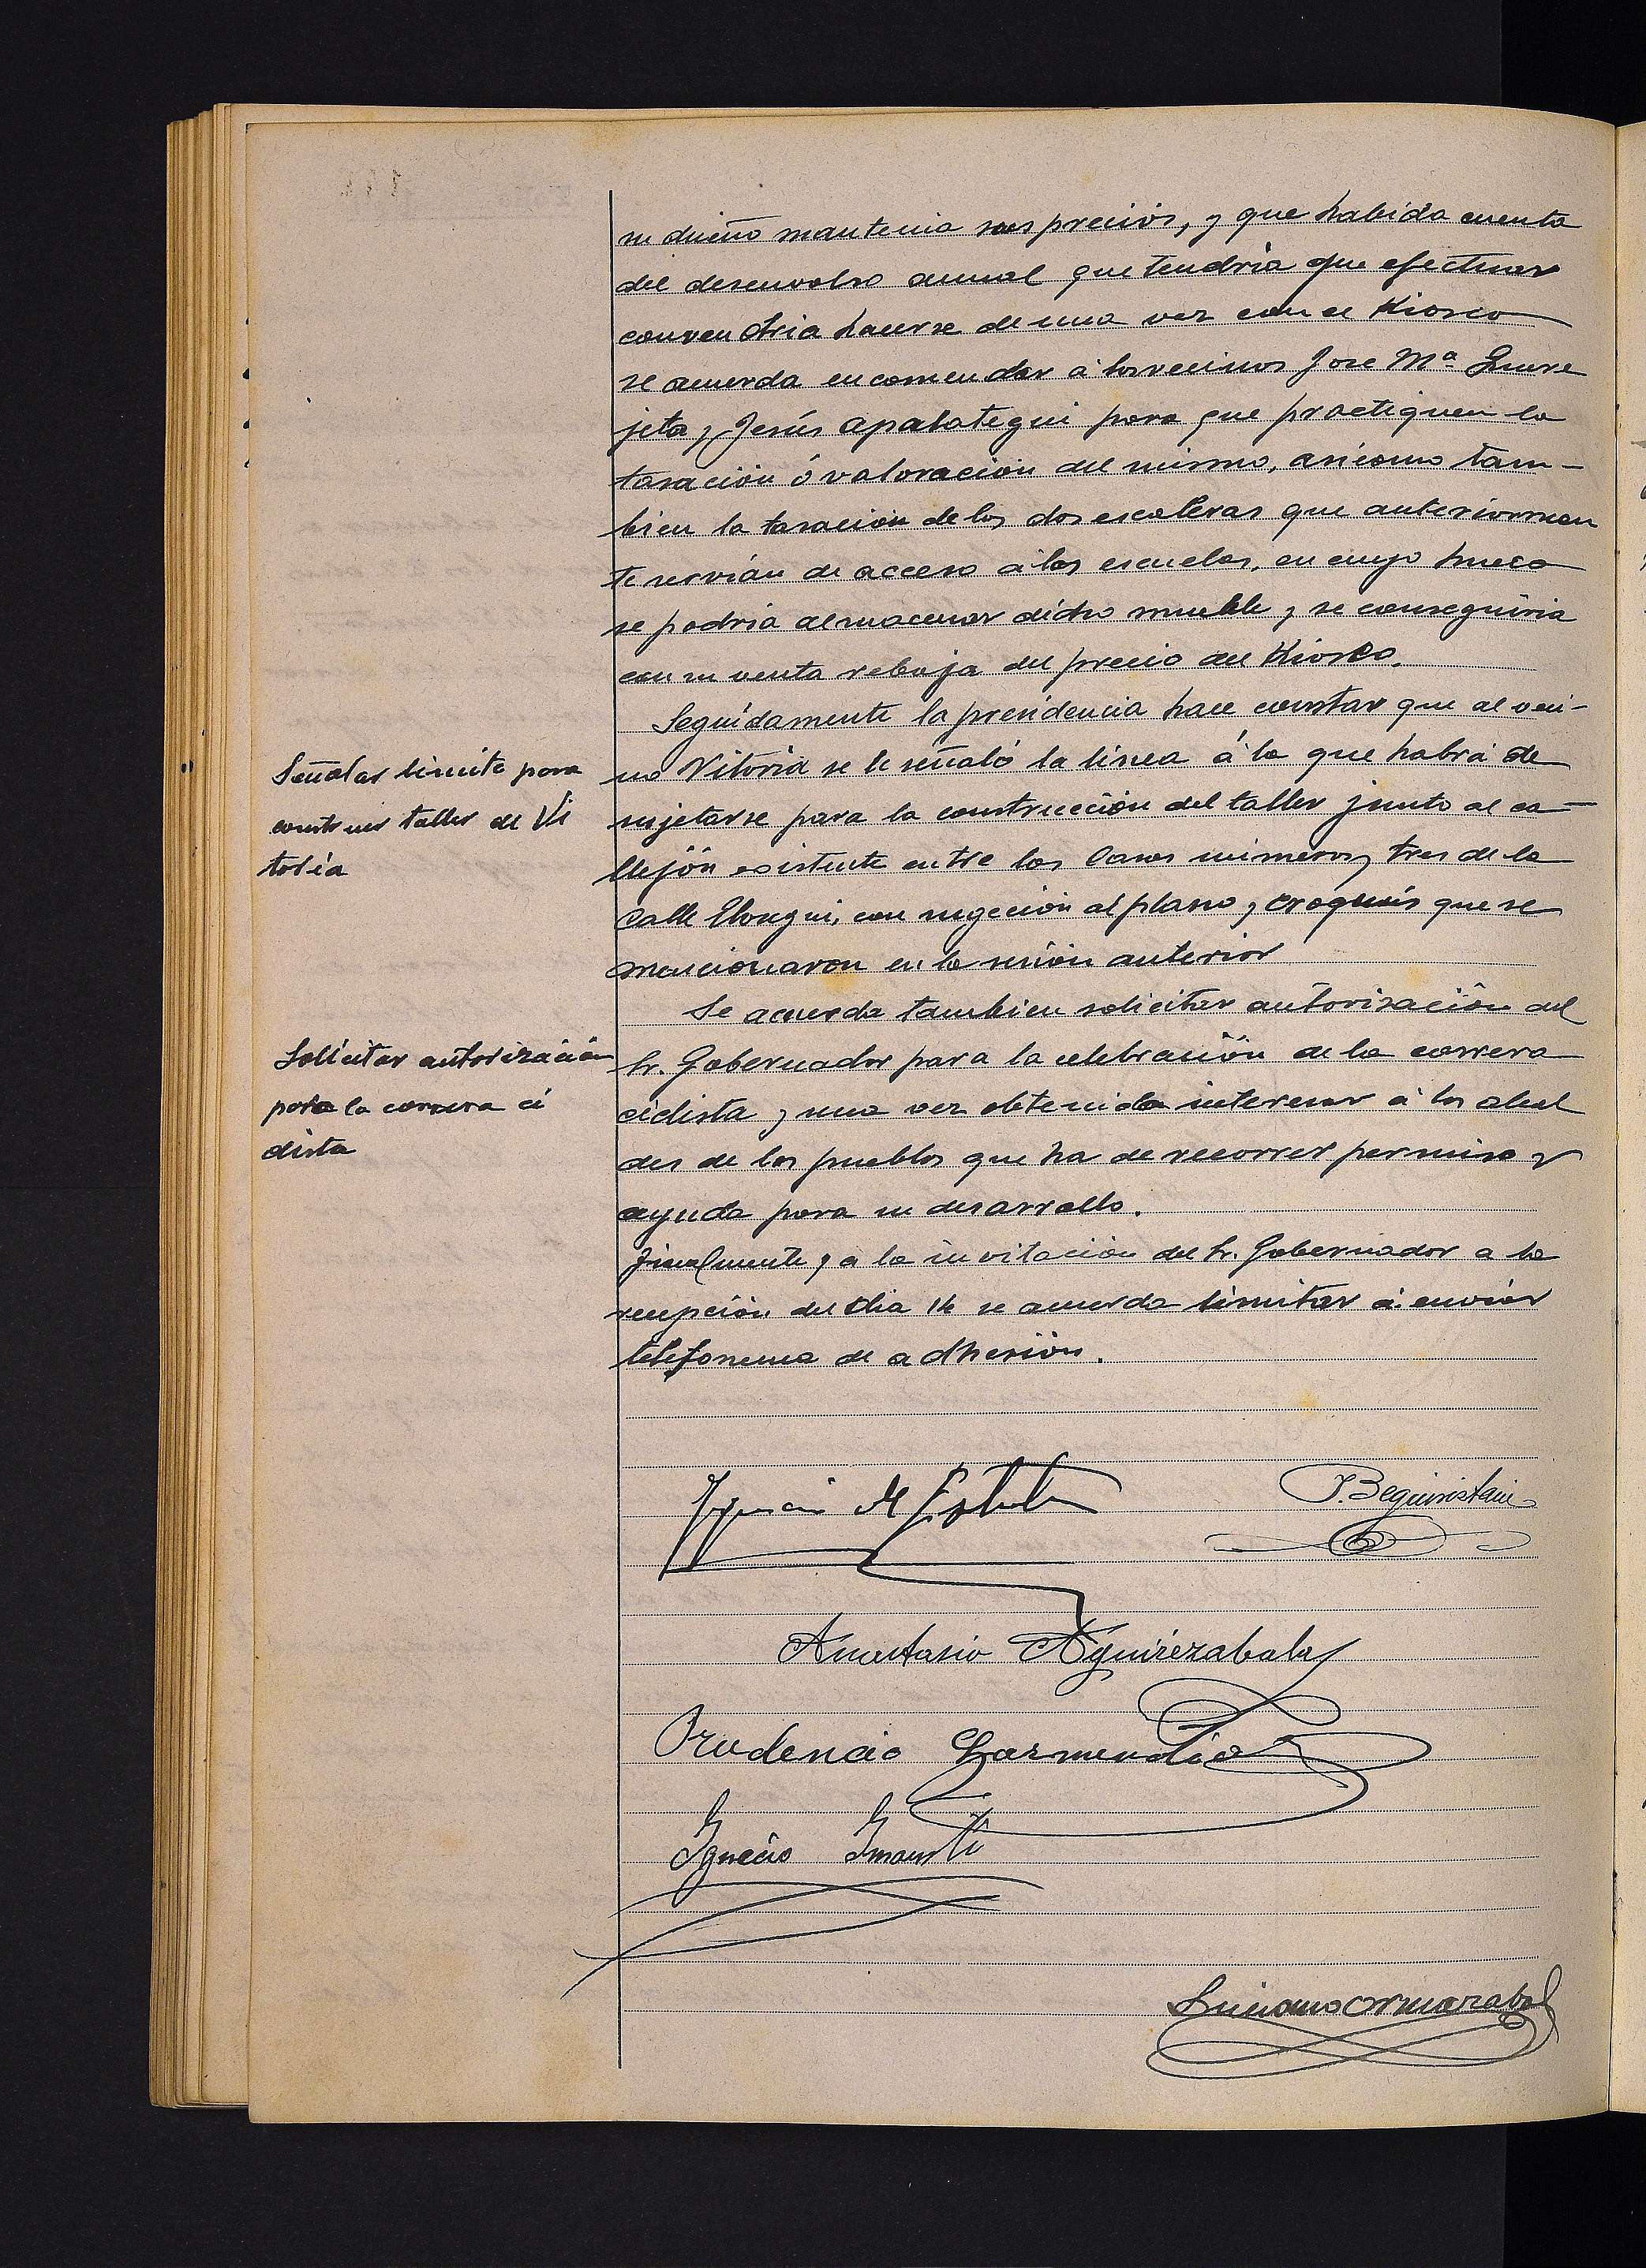 su dueño mantenia sus precios, y que habida cuenta
del desenvolso anual que tendria que efectuar
convendria hacerse de una vez con el Kiosco
se acuerda encomendar á los vecinos Jose Mª Lure
jeta y Jesús Apalategui para que practiquen la
tasación ó valoración del mismo, asi como tam-
bien la tasación de las dos escaleras que anteriormen
te servian de acceso á las escuelas, en cuyo hueco
se podria almacenar dicho mueble y se conseguiria
con su venta rebaja del precio del Kiosko.
Seguidamente la presidencia hace constar que al veci-
Señalar limite para
construir taller de Vi
toria
no Vitoria se le señaló la linea á la que habrá de
sujetarse para la construcción del taller junto al ca-
llejón existente entre las Casas números tres de la
Calle Elosegui, con sugeción al plano y croquis que se
mencionaron en la sesión anterior
Se acuerda tambien solicitar autorización del
Solicitar autorización
para la carrera ci
clista
Sr. Gobernador para la celebración de la carrera
ciclista y una vez obtenida interesar á los alcal
des de los pueblos que ha de recorrer permiso y
ayuda para su desarrollo.
Finalmente y a la invitación del Sr. Gobernador a la
recepción del dia 14 se acuerda limitar á enviar
telefonema de adhesión.
Ignacio M
J. Beguiristain
Anastasio Aguirezabala
Prudencio Garmendia
Ignacio
Luciano Ormazabal